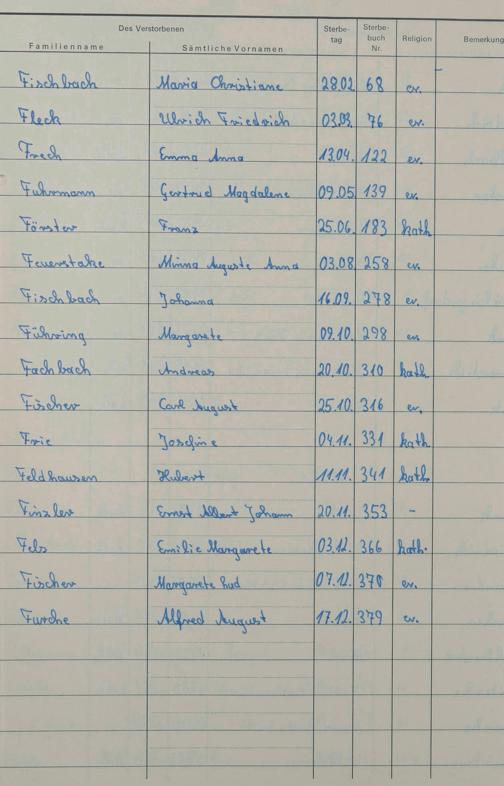 Des Verstorbenen
Familienname Sämtliche Vornamen Sterbe-tag Sterbe-buch Nr. Religion Bemerkung
Fischbach Maria Christiane 28.02 68 ev.
Fleck Ulrich Friedrich 03.03. 76 ev.
Frech Emma Anna 13.04. 122 ev.
Fuhrmann Gertrud Magdalene 09.05 139 ev.
Förster Franz 25.06. 183 kath
Feuerstake Minna Auguste Anna 03.08 258 ev.
Fischbach Johanna 16.09. 278 ev.
Führing Margarete 09.10. 298 ev.
Fachbach Andreas 20.10. 310 kath.
Fischer Carl August 25.10. 316 ev.
Frie Josefine 04.11. 331 kath
Feldhausen Hubert 11.11. 341 kath.
Finzler Ernst Albert Johann 20.11. 353 -
Fels Emilie Margarete 03.12. 366 kath.
Fischer Margarete 07.12. 370 ev.
Furche Alfred August 17.12. 379 ev.